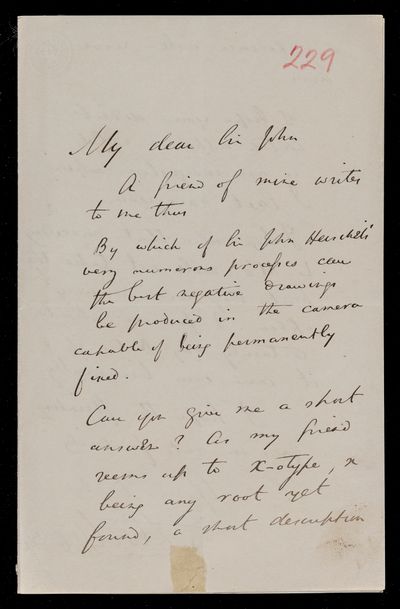 229
My dear Sir John
A friend of mine writes
to me thus
By which of Sir John Herschel's
very numerous processes can
the best negative drawings
be produced in the camera
capable of being permanently
fixed.
Can you give me a short
answer? As my friend
seems up to X-otype, x
being any root yet
found, a short description